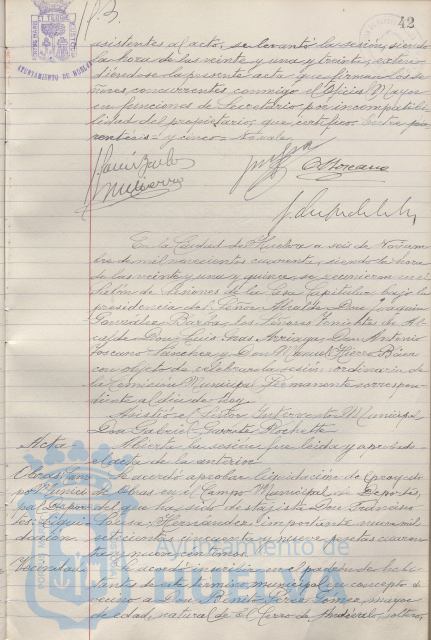 42
asistentes al acto, se levantó la sesión, siendo
la hora de las veinte y una y treinta, exten-
diéndose la presente acta que firman los Se-
ñores concurrentes conmigo el Oficial Mayor
en funciones de Secretario por incompatibi-
lidad del propietario, que certifico. Entre pa-
rentésis y cinco = No vale
AYUNTAMIENTO DE HUELVA
En la Ciudad de Huelva a seis de Noviem-
bre de mil novecientos cuarenta, siendo la hora
de las veinte y una y quince, se reunieron en el
Salón de Sesiones de la Casa Capitular bajo la
presidencia del Señor Alcalde Don Joaquín
González Barba los Señores Tenientes de Al-
calde Don Luis Arriaga, Don Antonio
Toscano Sánchez y Don Manuel Hierro
con objeto de celebrar la sesión ordinaria de
la Comisión Municipal Permanente correspon-
diente al día de hoy.
Asistió el Señor Interventor Municipal
Don Gabriel Garrote
Acta Abierta la sesión fue leída y aprobada
el acta de la anterior.
Obras Se acordó aprobar liquidación de
de obras en el Campo Municipal de Deportes
del que ha sido destajista Don Francisco
Hernández, importante nueve mil
setecientas nueve pesetas cuaren-
ta y nueve céntimos.
Vecindad Se acordó inscribir en el padrón de habi-
tantes de este término municipal en concepto de
vecino a Don Benito Pérez Gómez, mayor
de edad, natural de El Cerro de Andévalo, soltero,
Ayuntamiento de
HUELVA